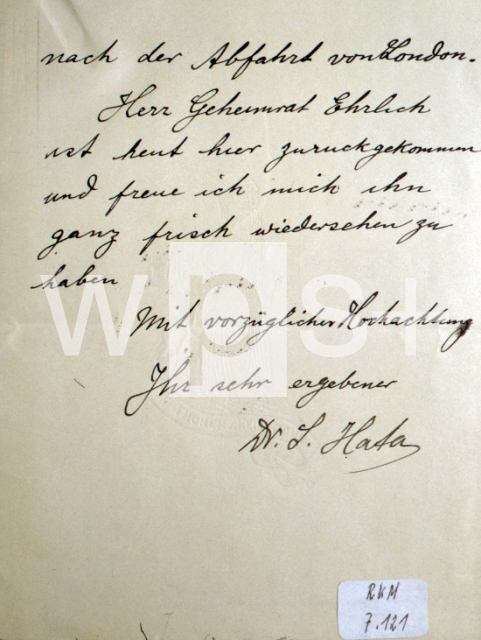 nach der Abfahrt von London.
Herr Geheimrat Ehrlich
ist heut hier zurückgekommen
und freue ich mich ihn
ganz frisch wiedersehen zu
haben
Mit vorzüglicher Hochachtung
Ihr sehr ergebener
Dr. S. Hata
wps+
RKM
7.121